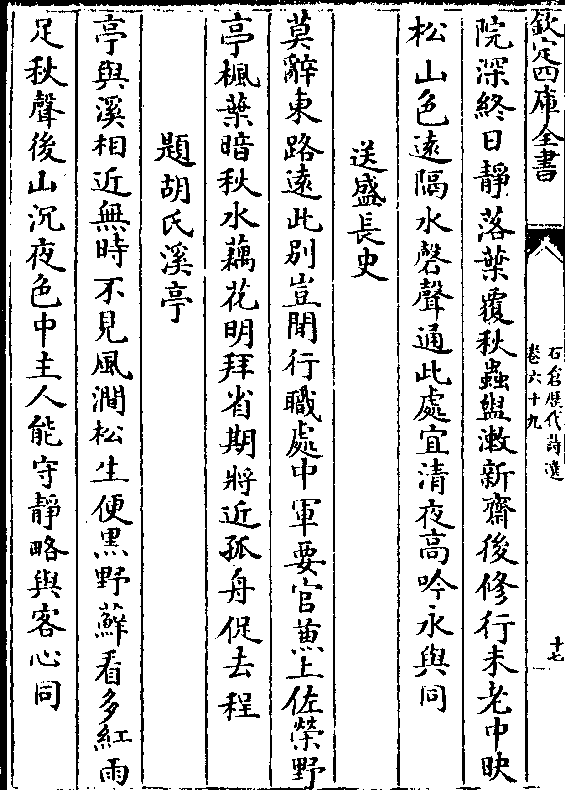 欽定四庫全書
石倉歷代詩選
卷六十九
十七
院深終日靜落葉覆秋蟲盥漱新齋後修行未老中映
松山色遠隔水磬聲通此處宜清夜高吟永與同
送盛長史
莫辭東路遠此別豈閒行職處中軍要官兼上佐榮野
亭楓葉暗秋水藕花明拜省期將近孤舟促去程
題胡氏溪亭
亭與溪相近無時不見風澗松生便黑野蘚看多紅雨
足秋聲後山沉夜色中主人能守靜略與客心同